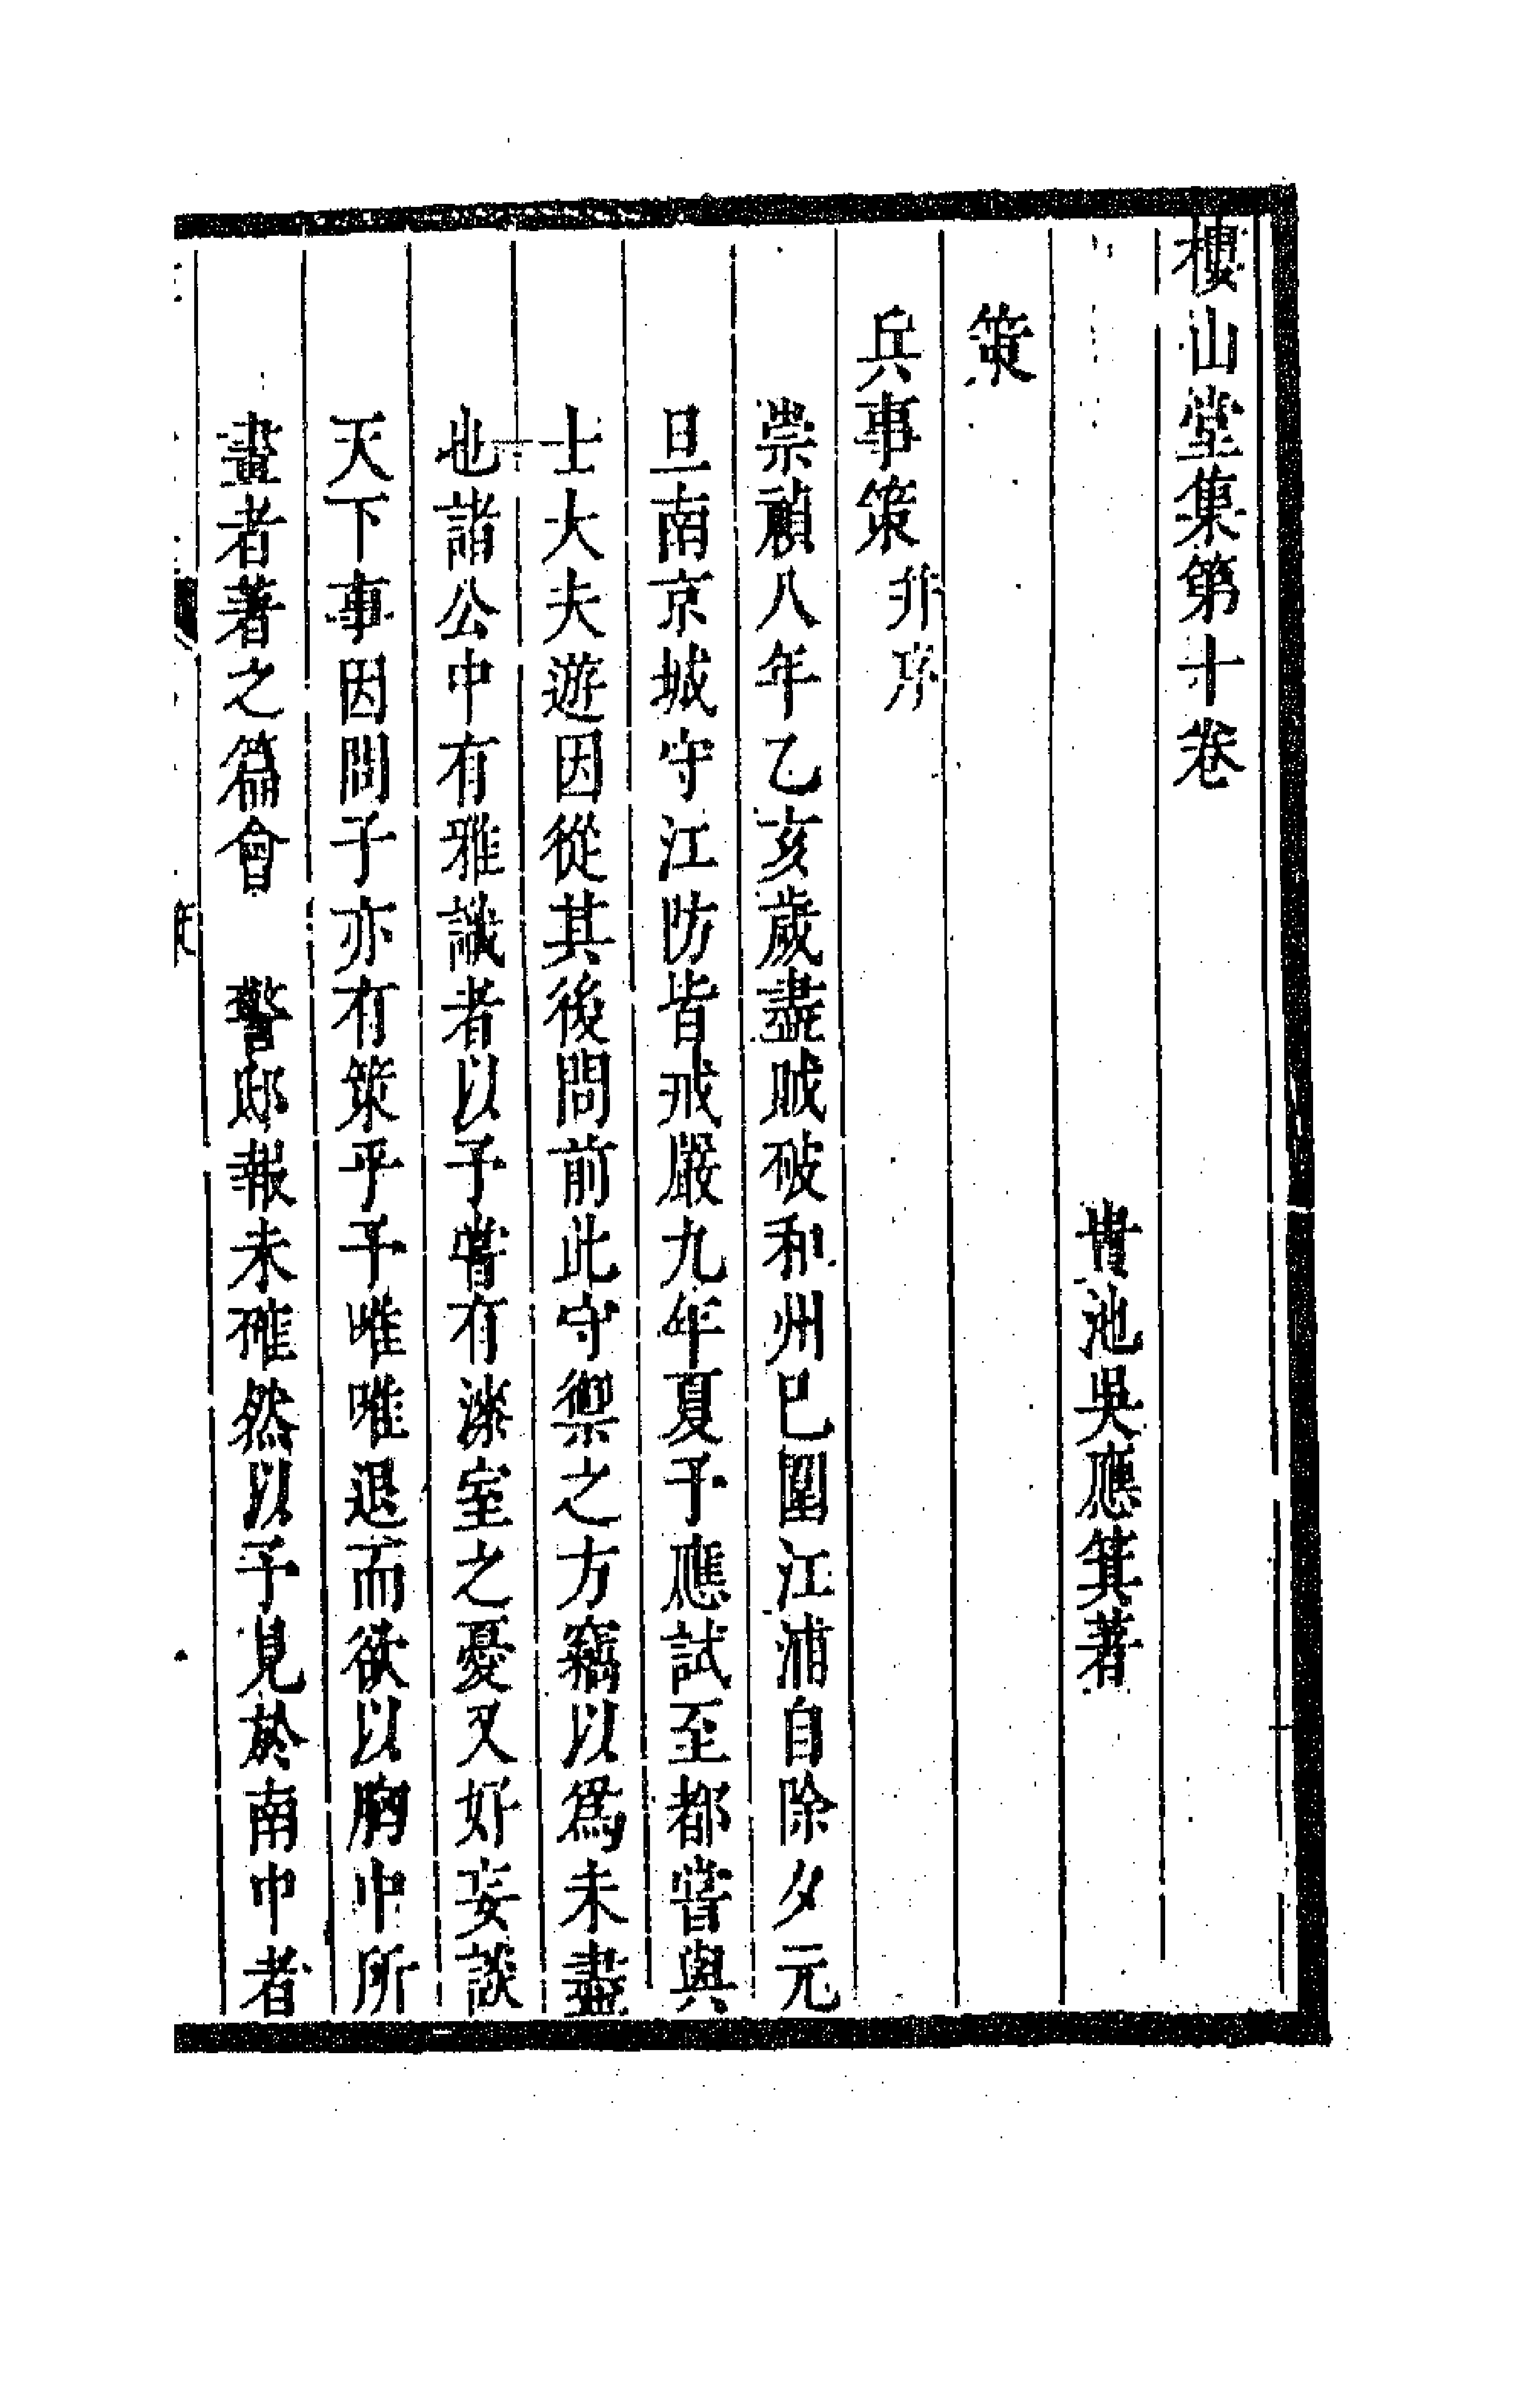 樓山堂集第十卷
貴池吳應箕著
策
兵事策并序
崇禎八年乙亥歲盡賊破和州已圍江浦自除夕元
旦南京城守江防皆戒嚴九年夏予應試至都嘗與
士大夫遊因從其後問前此守禦之方竊以爲未盡
也諸公中有雅識者以予嘗有漆室之憂又好妄談
天下事因問子亦有策乎予唯唯退而欲以胸中所
畫者著之篇會　警邸報未確然以予見於南中者